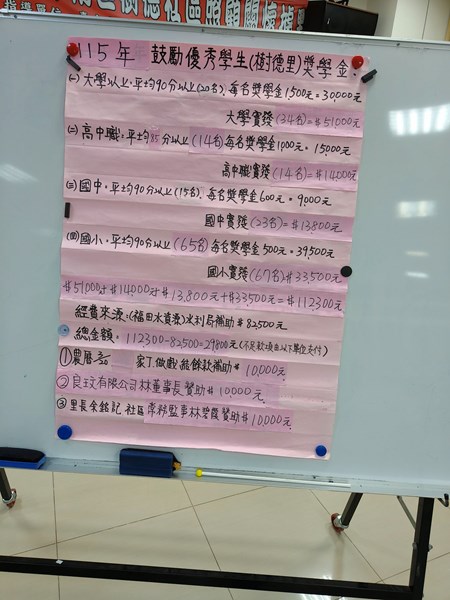 社區照顧關懷據
115年 鼓勵優秀學生(樹德里)獎學金.
(一)大學以上,平均90分以上(20名),每名獎學金1,500元=30,000元
大學實發(34名)=$51,000元
(二)高中職,平均85分以上(14名)每名獎學金1,000元=15,000元
高中職實發(14名)=$14,000元
(三)國中,平均90分以上(15名),每名獎學金600元=9,000元
國中實發(23名)=$13,800元
(四)國小,平均90分以上(65名)每名獎學金500元=39,500元
國小實發(67名)$33,500元
$51,000元+$14,000元+$13,800元+$33,500元=$112,300元
經費來源:(福田水資源)水利局補助$82,500元
總金額:112300-82500=29800元(不足款項由以下單位支付)
①農曆2/20 家丁做戲餘款補助$10,000元
②良玟有限公司林董事長贊助$10,000元
③里長余銘記.社區常務監事林碧霞贊助$10,000元